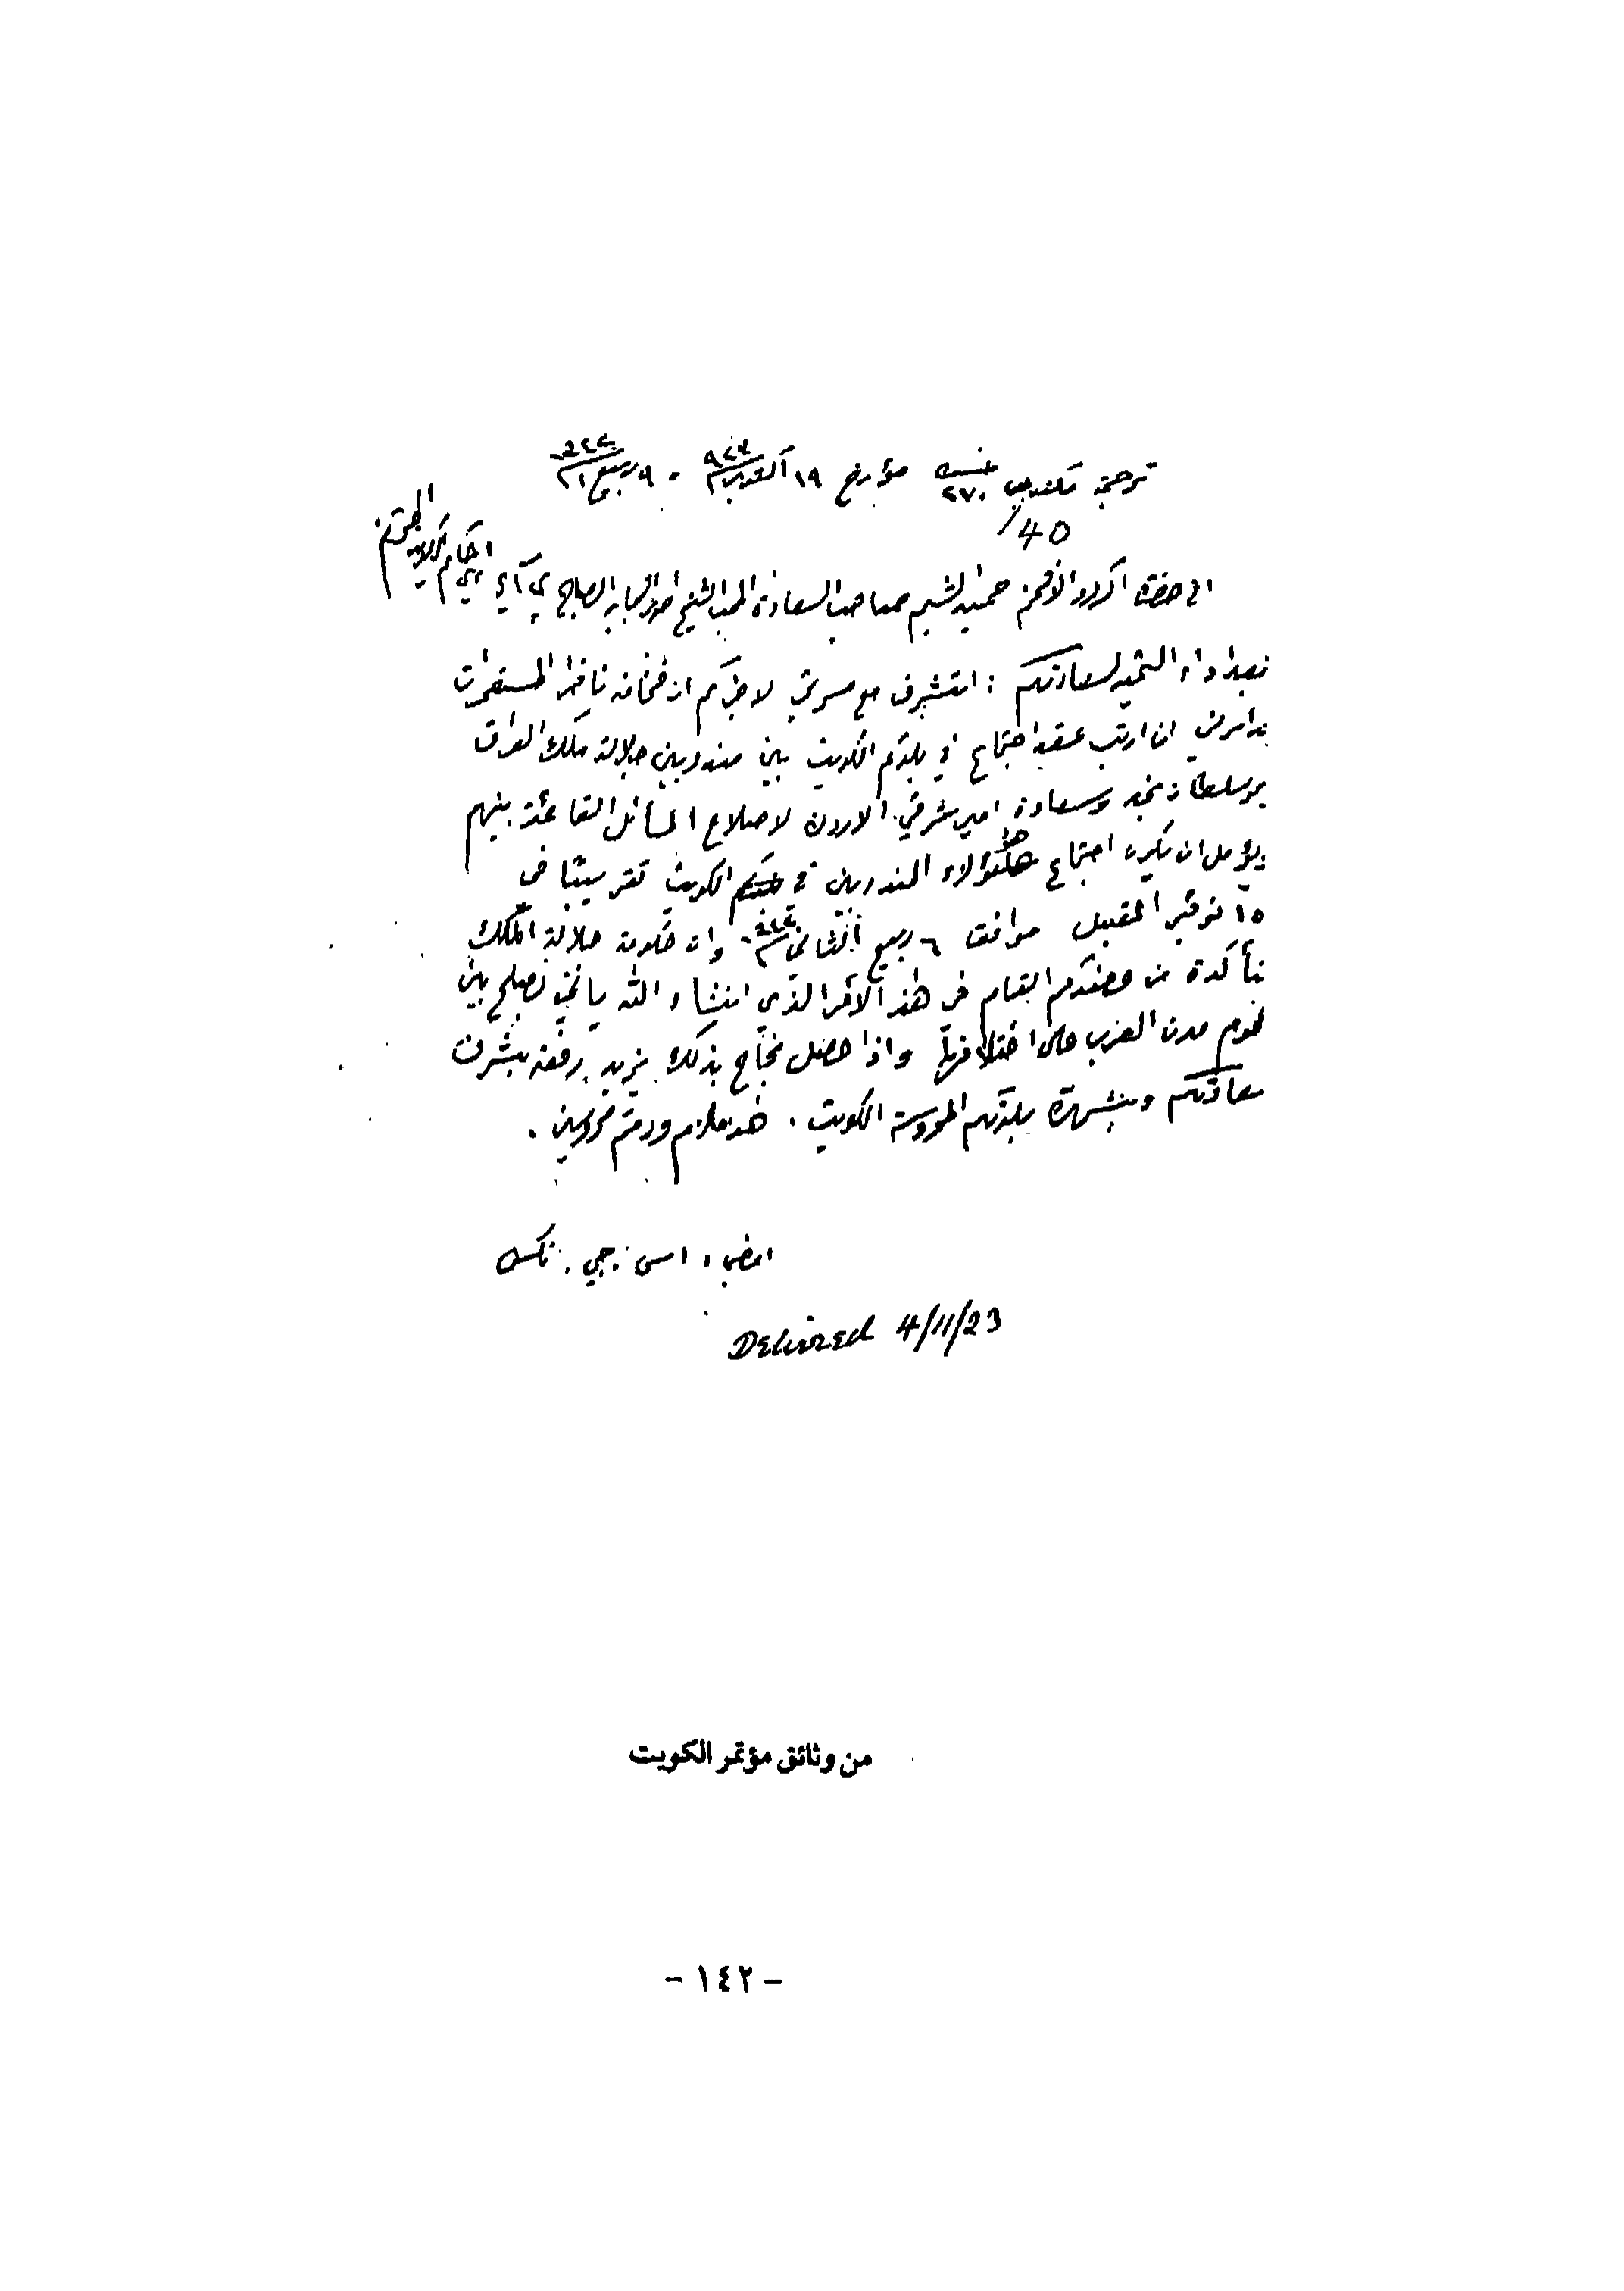 ترجمة مكتوب نمرة ٢٧٠ مؤرخ ١٩ اكتوبر ٩٢٣ - ٩ ربيع ١
/40
الى حضرة الافخم حميد الشيم صاحب السعادة المحب الشيخ احمد الجابر الصباح سي آي اي حاكم الكويت المحترم
بعد اداء التحية لسعادتكم : اتشرف مع مسرتي لاخبركم ان فخامة ناظر المستعمرات
قد امرني ان ارتب عقد اجتماع في بلدتكم الكويت بين مندوبين جلالة ملك العراق
وسلطان نجد وسعادة امير شرقي الاردن لاصلاح المسائل القائمة بينهم
ويؤمل ان يكون اجتماع هؤلاء المندوبين في الكويت تقريبًا في
١٥ نوفمبر المقبل موافق ٦ ربيع الثاني وان حكومة جلالة الملك
متأكدة من حضرتكم القيام في هذا الامر الذي انشاء الله يأتي بصلح بين
عموم مدن العرب على اختلافها واذا حصل نجاح بذلك يزيد رفعة بشرف
سعادتكم وبشهرة بلدتكم المحروسة الكويت . هذا ودمتم محروسين .
امضاء اس . جي . نكس
Delivered 4/11/23
من وثائق مؤتمر الكويت
- ١٤٢ -